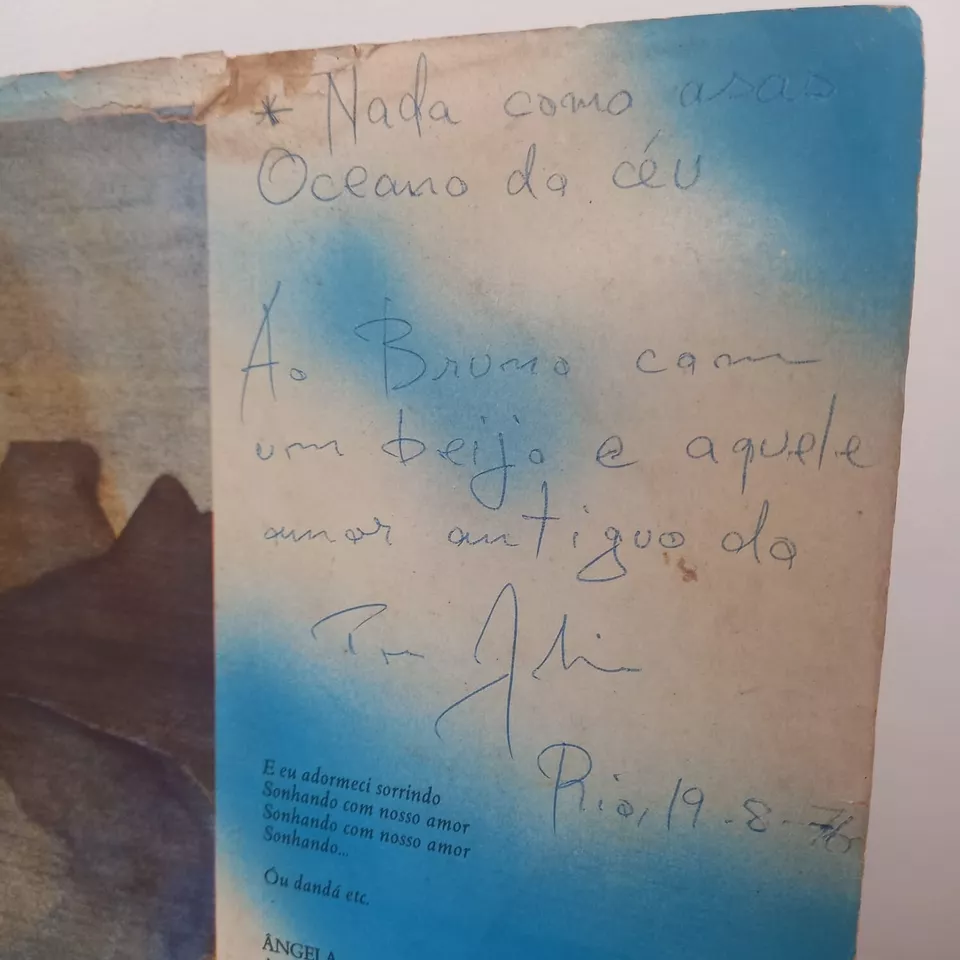 * Nada como asas
Oceano do céu
Ao Bruno com
um beijo e aquele
amor antigo da
Rio, 19-8-76
E eu adormeci sorrindo
Sonhando com nosso amor
Sonhando com nosso amor
Sonhando...
Óu dandá etc.
ÂNGELA